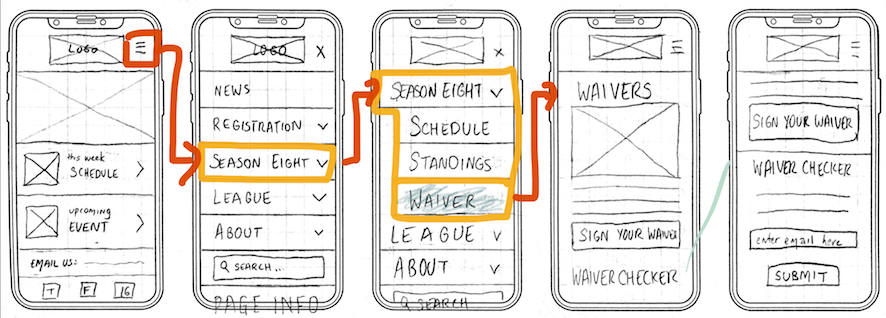 LOGO
this week
SCHEDULE
upcoming
EVENT
EMAIL US:
T F IG
LOGO X
NEWS
REGISTRATION
SEASON EIGHT
LEAGUE
ABOUT
Q SEARCH...
PAGE INFO
X
SEASON EIGHT
SCHEDULE
STANDINGS
WAIVER
LEAGUE
ABOUT
Q SEARCH
WAIVERS
SIGN YOUR WAIVER
WAIVER CHECKER
SIGN YOUR WAIVER
WAIVER CHECKER
enter email here
SUBMIT